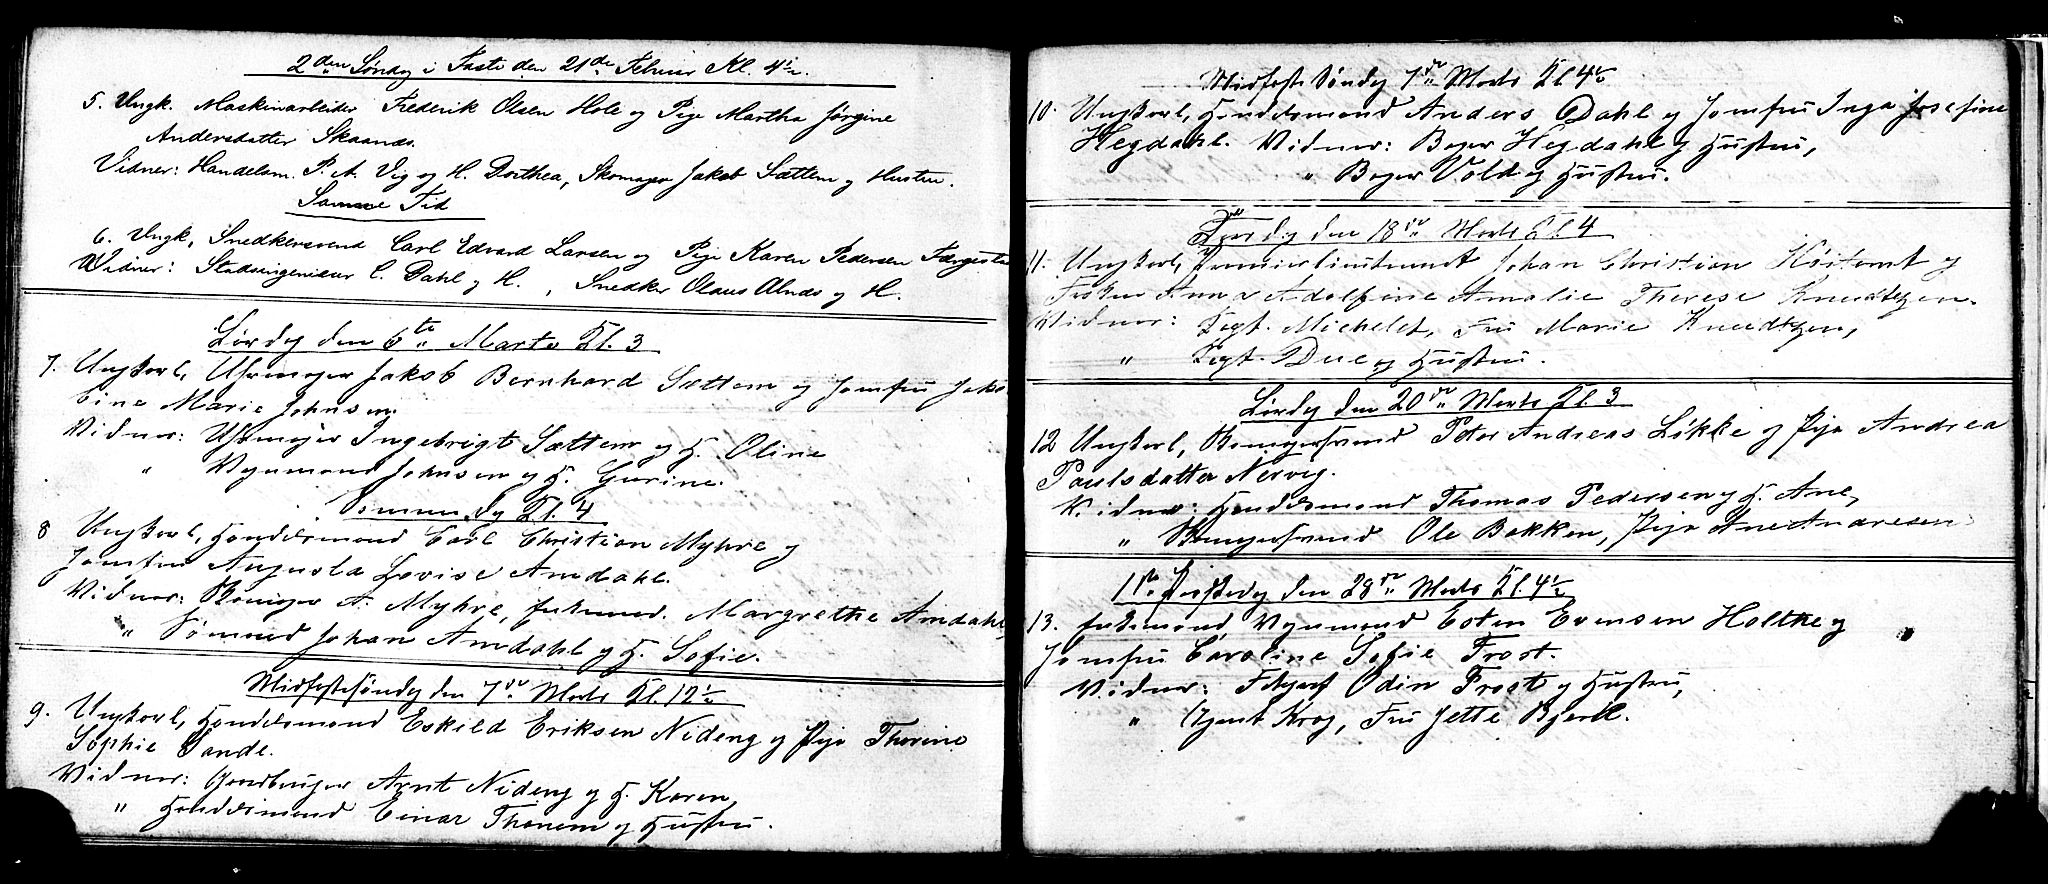 2den Søndag i Faste den 21de Februar Kl. 4½.
5. Ungk. Maskinarbeider Frederik Olsen Hole og Pige Martha Jørgine
Andersdatter Skaanes.
Vidner: Handelsm. P. A. Vig og H. Dorthea, Skomager Jakob Sættem og Hustru.
Samme Tid
6. Ungk. Snedkersvend Carl Edvard Larsen og Pige Karen Pedersen Færgestad
Vidner: Stadsingenieur C. Dahl og H., Snedker Olaus Alnæs og H.
Lørdag den 6te Marts Kl. 3
7. Ungkarl, Uhrmager Jakob Bernhard Sættem og Jomfru Jako
bine Marie Johnsen.
Vidner: Uhrmager Ingebrigt Sættem og H. Oline
" Vognmand Johnsen og H. Gurine.
Samme Dag Kl. 4
8 Ungkarl, Handelsmand Carl Christian Myhre og
Jomfru Augusta Lovise Amdahl.
Vidner: A. Myhre, Enkemad. Margrethe Amdahl,
" Sømand Johan Amdahl og H. Sofie.
Midfastesøndag den 7de Marts Kl. 12½
9. Ungkarl, Handelsmand Eskild Eriksen Nideng og Pige Thorine
Sophie Sande.
Vidner: Gaardbruger Arnt Nideng og H. Karen,
" Handelsmand Einar Thonem og Hustru.
Midfaste Søndag 7de Marts Kl 4½
10. Ungkarl, Handelsmand Anders Dahl og Jomfru Inga Josefine
Hegdahl. Vidner: Bager Hegdahl og Hustru,
" Bager Vold og Hustru.
den 18de Marts Kl. 4
11. Ungkarl, Premierlieutenant Johan Christian og
Frøken Anna Adolfine Amalie Therese Knudtzon.
Vidner: Kapt. Michelet, Fru Marie Knudtzon,
" Kapt. Due og Hustru.
Lørdag den 20de Marts Kl. 3
12 Ungkarl, Peter Andreas Løkke og Pige Andrea
Paulsdatter Nervig.
Vidner: Handelsmand Thomas Pedersen og H. Ane,
" Ole Bakken, Pige Ane Andresen
1ste Paaskedag den 28de Marts Kl. 4½
13. Enkemand Vognmand Esten Evensen Holtke og
Jomfru Caroline Sofie Frost.
Vidner: Odin Frost og Hustru,
" Agent Krog, Fru Jette Bjerk.